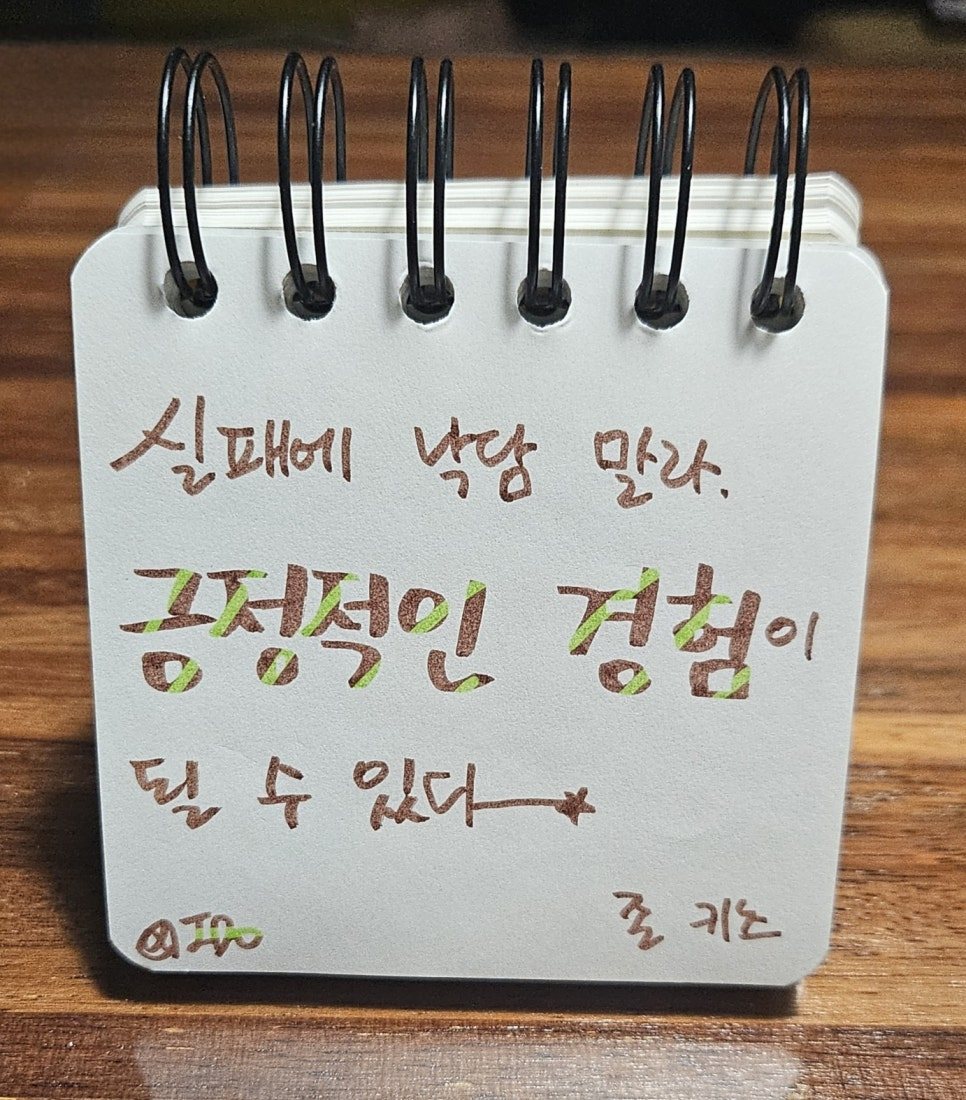 실패에 낙담 말라.
긍정적인 경험이
될 수 있다
존 키츠